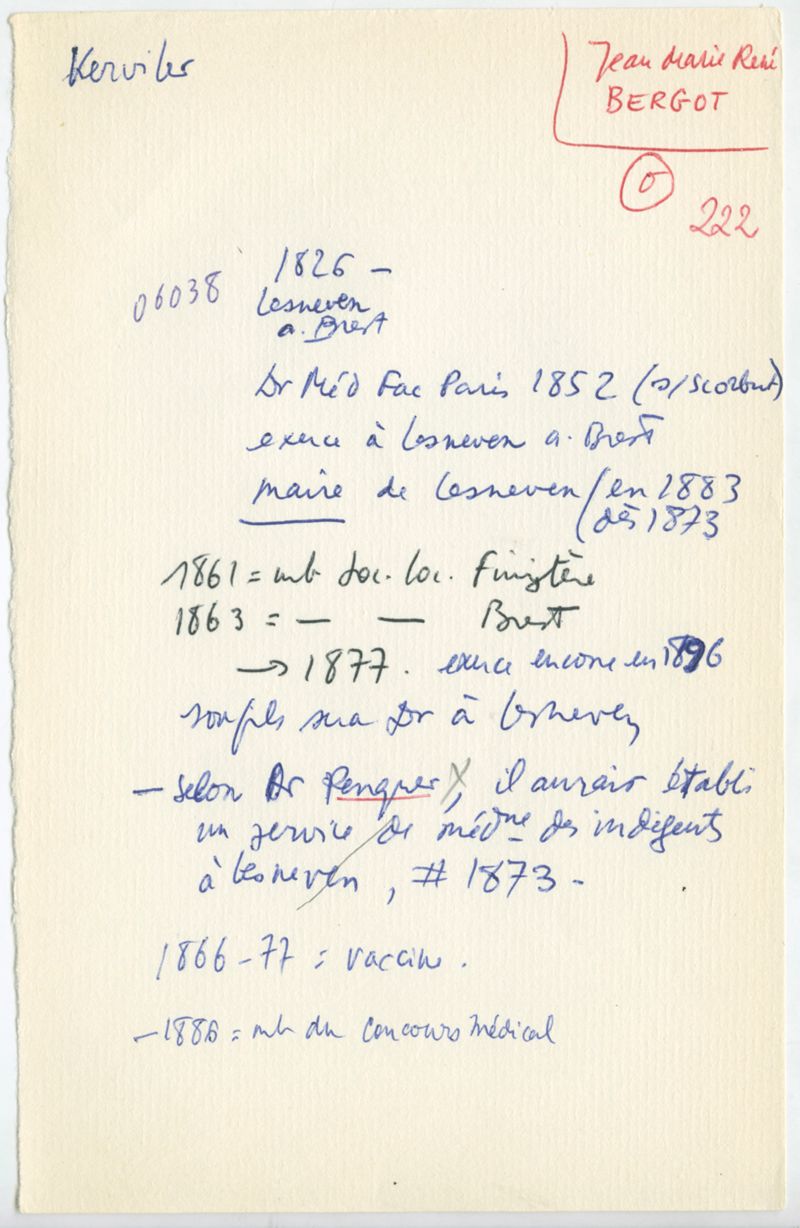 Kerviler
Jean Marie René
BERGOT
0
222
06038
1826 –
Lesneven
a. Brest
Dr Méd Fac Paris 1852 (s/scorbut)
exerce à Lesneven a. Brest
maire de Lesneven (en 1883
(dès 1873
1861 = mb Soc. loc. Finistère
1863 = — — Brest
→ 1877. exerce encore en 1896
son fils sera Dr à Lesneven
— selon Dr Penquer X, il aurait établi
un service de médne des indigents
à Lesneven, # 1873 –
1866–77 = vaccine.
— 1886 = mb du Concours Médical